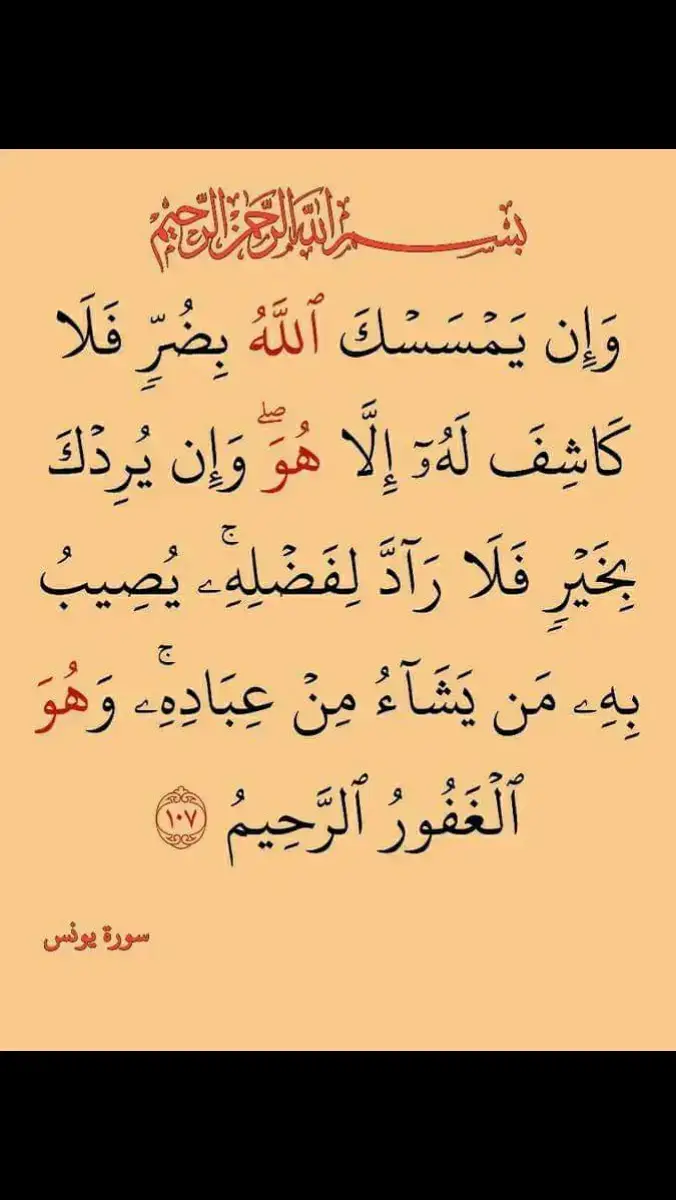 بسم الله الرحمن الرحيم
وَإِن يَمۡسَسۡكَ ٱللَّهُ بِضُرّٖ فَلَا
كَاشِفَ لَهُۥٓ إِلَّا هُوَۖ وَإِن يُرِدۡكَ
بِخَيۡرٖ فَلَا رَآدَّ لِفَضۡلِهِۦۚ يُصِيبُ
بِهِۦ مَن يَشَآءُ مِنۡ عِبَادِهِۦۚ وَهُوَ
ٱلۡغَفُورُ ٱلرَّحِيمُ ١٠٧
سورة يونس